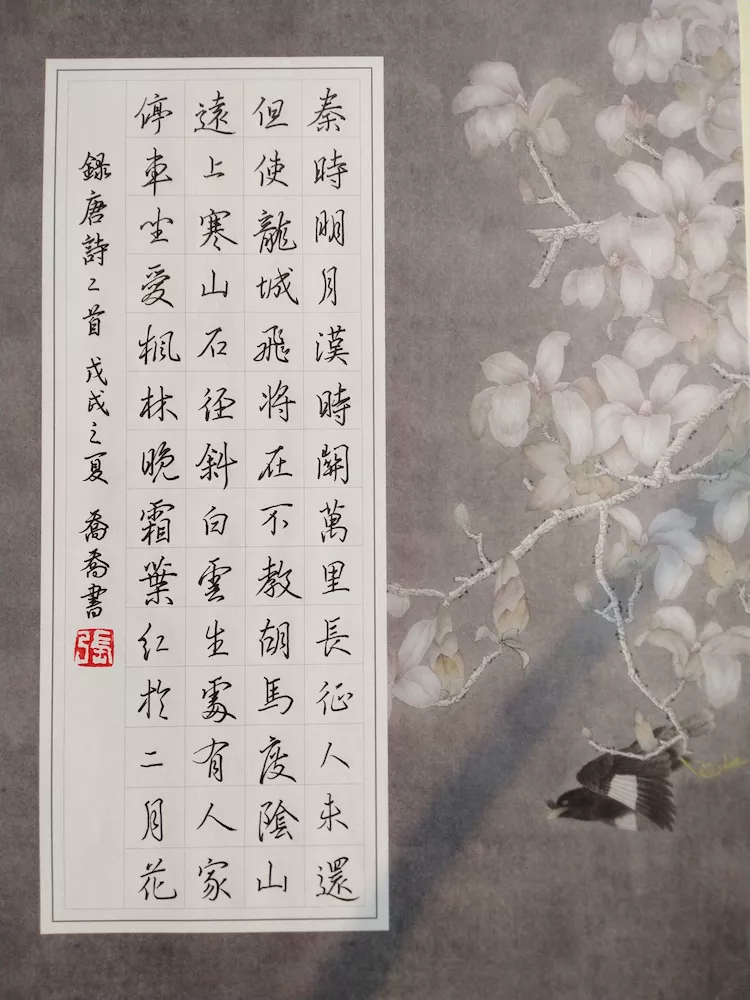 秦時明月漢時關萬里長征人未還
但使龍城飛將在不教胡馬度陰山
遠上寒山石径斜白雲生處有人家
停車坐愛楓林晚霜葉紅於二月花
録唐詩二首 戊戌之夏 喬喬書
張